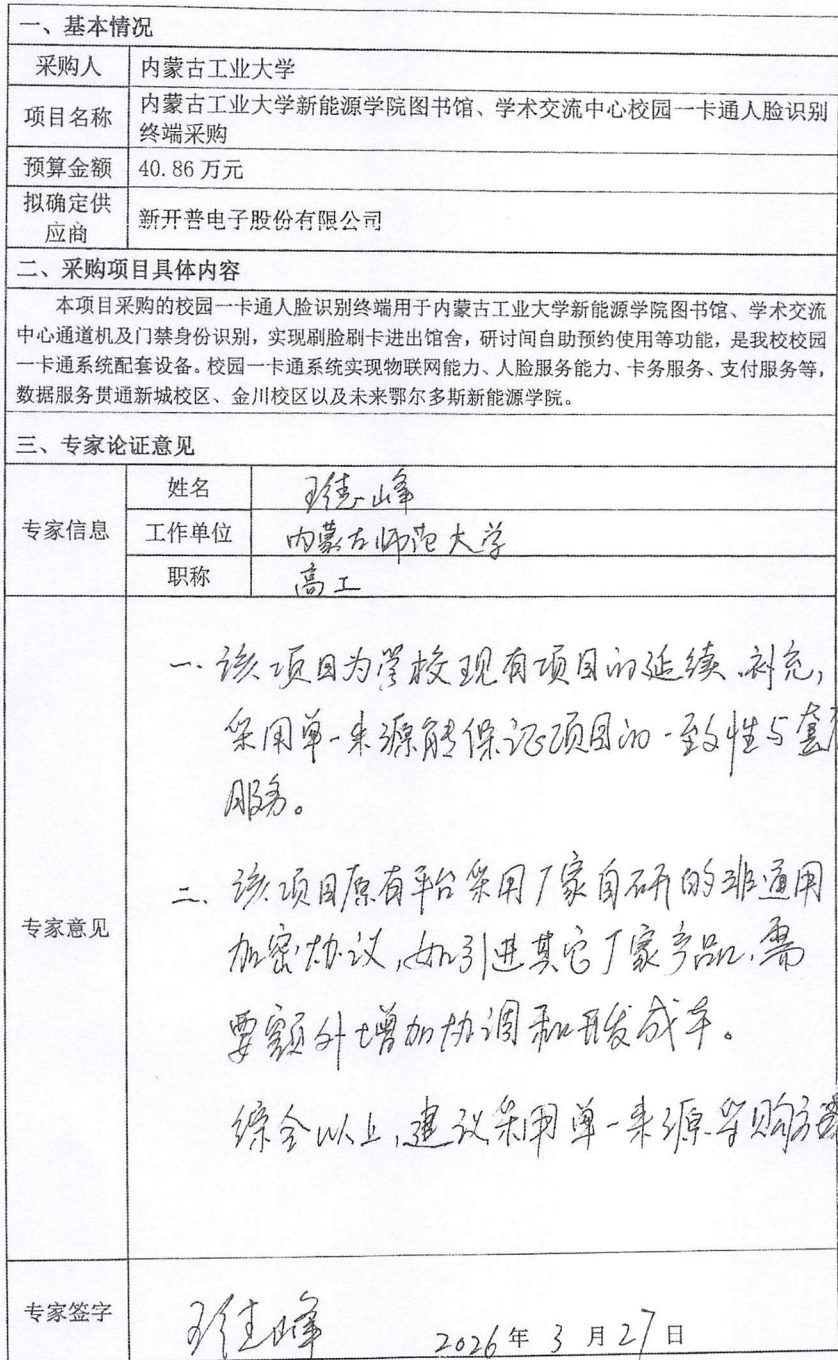 一、基本情况
采购人 内蒙古工业大学
项目名称 内蒙古工业大学新能源学院图书馆、学术交流中心校园一卡通人脸识别
终端采购
预算金额 40.86 万元
拟确定供
应商 新开普电子股份有限公司
二、采购项目具体内容
本项目采购的校园一卡通人脸识别终端用于内蒙古工业大学新能源学院图书馆、学术交流
中心通道机及门禁身份识别，实现刷脸刷卡进出馆舍，研讨间自助预约使用等功能，是我校校园
一卡通系统配套设备。校园一卡通系统实现物联网能力、人脸服务能力、卡务服务、支付服务等，
数据服务贯通新城校区、金川校区以及未来鄂尔多斯新能源学院。
三、专家论证意见
专家信息
姓名 峰
工作单位 内蒙古师范大学
职称 高工
专家意见
一、该项目为学校现有项目的延续、补充，
采用单一来源能保证项目的一致性与
服务。
二、该项目原有平台采用厂家自研的非通用
加密协议，如引进其它厂家产品，需
要额外增加协调和开发成本。
综合以上，建议采用单一来源采购方
专家签字 峰 2026年 3 月 27 日